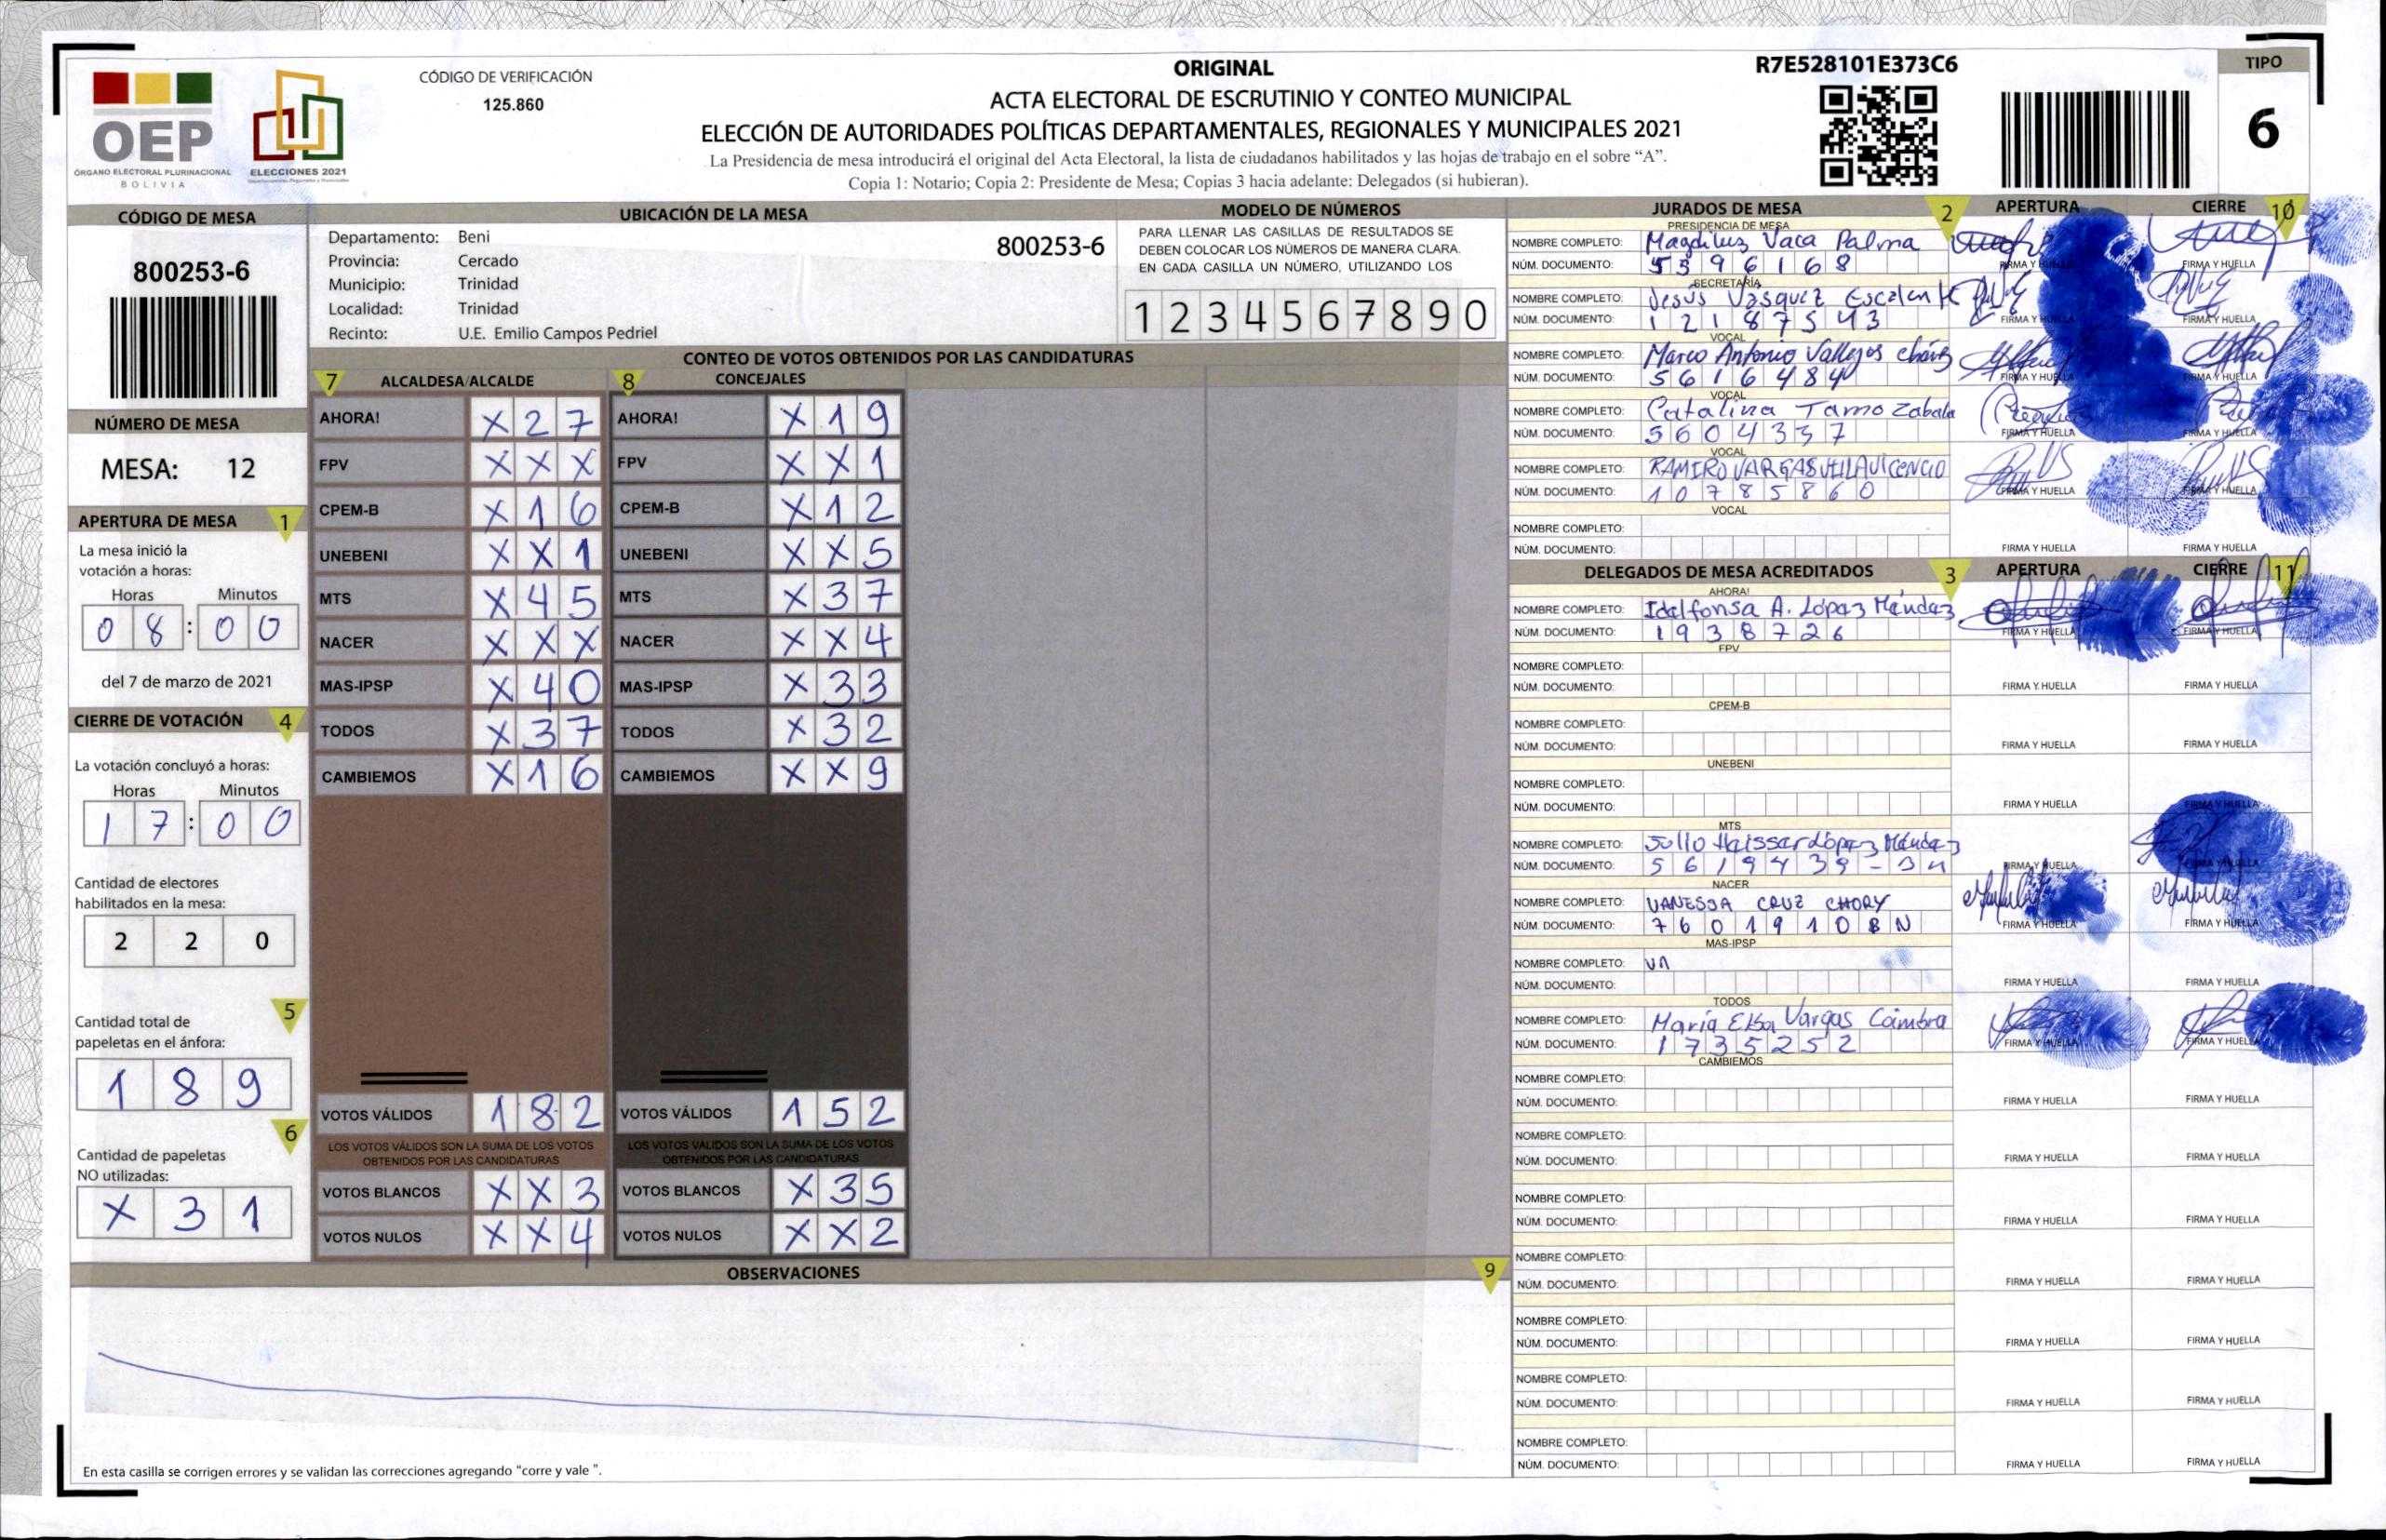 OEP
ÓRGANO ELECTORAL PLURINACIONAL
BOLIVIA
ELECCIONES 2021
CÓDIGO DE VERIFICACIÓN
125.860
ORIGINAL
ACTA ELECTORAL DE ESCRUTINIO Y CONTEO MUNICIPAL
ELECCIÓN DE AUTORIDADES POLÍTICAS DEPARTAMENTALES, REGIONALES Y MUNICIPALES 2021
La Presidencia de mesa introducirá el original del Acta Electoral, la lista de ciudadanos habilitados y las hojas de trabajo en el sobre “A”.
Copia 1: Notario; Copia 2: Presidente de Mesa; Copias 3 hacia adelante: Delegados (si hubieran).
R7E528101E373C6
TIPO
6
CÓDIGO DE MESA
800253-6
NÚMERO DE MESA
MESA: 12
APERTURA DE MESA 1
La mesa inició la
votación a horas:
Horas Minutos
0 8 : 0 0
del 7 de marzo de 2021
CIERRE DE VOTACIÓN 4
La votación concluyó a horas:
Horas Minutos
1 7 : 0 0
Cantidad de electores
habilitados en la mesa:
2 2 0
5
Cantidad total de
papeletas en el ánfora:
1 8 9
6
Cantidad de papeletas
NO utilizadas:
X 3 1
UBICACIÓN DE LA MESA
Departamento: Beni 800253-6
Provincia: Cercado
Municipio: Trinidad
Localidad: Trinidad
Recinto: U.E. Emilio Campos Pedriel
MODELO DE NÚMEROS
PARA LLENAR LAS CASILLAS DE RESULTADOS SE
DEBEN COLOCAR LOS NÚMEROS DE MANERA CLARA.
EN CADA CASILLA UN NÚMERO, UTILIZANDO LOS
1 2 3 4 5 6 7 8 9 0
CONTEO DE VOTOS OBTENIDOS POR LAS CANDIDATURAS
7 ALCALDESA/ALCALDE 8 CONCEJALES
AHORA! X 2 7 AHORA! X 1 9
FPV X X X FPV X X 1
CPEM-B X 1 6 CPEM-B X 1 2
UNEBENI X X 1 UNEBENI X X 5
MTS X 4 5 MTS X 3 7
NACER X X X NACER X X 4
MAS-IPSP X 4 0 MAS-IPSP X 3 3
TODOS X 3 7 TODOS X 3 2
CAMBIEMOS X 1 6 CAMBIEMOS X X 9
VOTOS VÁLIDOS 1 8 2 VOTOS VÁLIDOS 1 5 2
LOS VOTOS VÁLIDOS SON LA SUMA DE LOS VOTOS LOS VOTOS VÁLIDOS SON LA SUMA DE LOS VOTOS
OBTENIDOS POR LAS CANDIDATURAS OBTENIDOS POR LAS CANDIDATURAS
VOTOS BLANCOS X X 3 VOTOS BLANCOS X 3 5
VOTOS NULOS X X 4 VOTOS NULOS X X 2
OBSERVACIONES 9
En esta casilla se corrigen errores y se validan las correcciones agregando “corre y vale ”.
JURADOS DE MESA 2 APERTURA CIERRE 10
PRESIDENCIA DE MESA
NOMBRE COMPLETO: Magdiluz Vaca Palma
NÚM. DOCUMENTO: 5 5 9 6 1 6 8 FIRMA Y HUELLA FIRMA Y HUELLA
SECRETARÍA
NOMBRE COMPLETO: Jesús Vásquez
NÚM. DOCUMENTO: 1 2 1 8 7 5 4 3 FIRMA Y HUELLA FIRMA Y HUELLA
VOCAL
NOMBRE COMPLETO: Marco Antonio Vallejos Chávez
NÚM. DOCUMENTO: 5 6 1 6 4 8 4 FIRMA Y HUELLA FIRMA Y HUELLA
VOCAL
NOMBRE COMPLETO: Catalina Tamo Zabala
NÚM. DOCUMENTO: 5 6 0 4 3 3 7 FIRMA Y HUELLA FIRMA Y HUELLA
VOCAL
NOMBRE COMPLETO: RAMIRO VARGAS VILLAVICENCIO
NÚM. DOCUMENTO: 1 0 7 8 5 8 6 0 FIRMA Y HUELLA FIRMA Y HUELLA
VOCAL
NOMBRE COMPLETO:
NÚM. DOCUMENTO: FIRMA Y HUELLA FIRMA Y HUELLA
DELEGADOS DE MESA ACREDITADOS 3 APERTURA CIERRE 11
AHORA!
NOMBRE COMPLETO: Idelfonsa A. López Méndez
NÚM. DOCUMENTO: 1 9 3 8 7 2 6 FIRMA Y HUELLA FIRMA Y HUELLA
FPV
NOMBRE COMPLETO:
NÚM. DOCUMENTO: FIRMA Y HUELLA FIRMA Y HUELLA
CPEM-B
NOMBRE COMPLETO:
NÚM. DOCUMENTO: FIRMA Y HUELLA FIRMA Y HUELLA
UNEBENI
NOMBRE COMPLETO:
NÚM. DOCUMENTO: FIRMA Y HUELLA FIRMA Y HUELLA
MTS
NOMBRE COMPLETO: López Méndez
NÚM. DOCUMENTO: 5 6 1 9 4 3 9 FIRMA Y HUELLA FIRMA Y HUELLA
NACER
NOMBRE COMPLETO: VANESSA CRUZ CHORY
NÚM. DOCUMENTO: 7 6 0 1 9 1 0 B N FIRMA Y HUELLA FIRMA Y HUELLA
MAS-IPSP
NOMBRE COMPLETO: VA
NÚM. DOCUMENTO: FIRMA Y HUELLA FIRMA Y HUELLA
TODOS
NOMBRE COMPLETO: María Elba Vargas Coimbra
NÚM. DOCUMENTO: 1 7 3 5 2 5 2 FIRMA Y HUELLA FIRMA Y HUELLA
CAMBIEMOS
NOMBRE COMPLETO:
NÚM. DOCUMENTO: FIRMA Y HUELLA FIRMA Y HUELLA
NOMBRE COMPLETO:
NÚM. DOCUMENTO: FIRMA Y HUELLA FIRMA Y HUELLA
NOMBRE COMPLETO:
NÚM. DOCUMENTO: FIRMA Y HUELLA FIRMA Y HUELLA
NOMBRE COMPLETO:
NÚM. DOCUMENTO: FIRMA Y HUELLA FIRMA Y HUELLA
NOMBRE COMPLETO:
NÚM. DOCUMENTO: FIRMA Y HUELLA FIRMA Y HUELLA
NOMBRE COMPLETO:
NÚM. DOCUMENTO: FIRMA Y HUELLA FIRMA Y HUELLA
NOMBRE COMPLETO:
NÚM. DOCUMENTO: FIRMA Y HUELLA FIRMA Y HUELLA